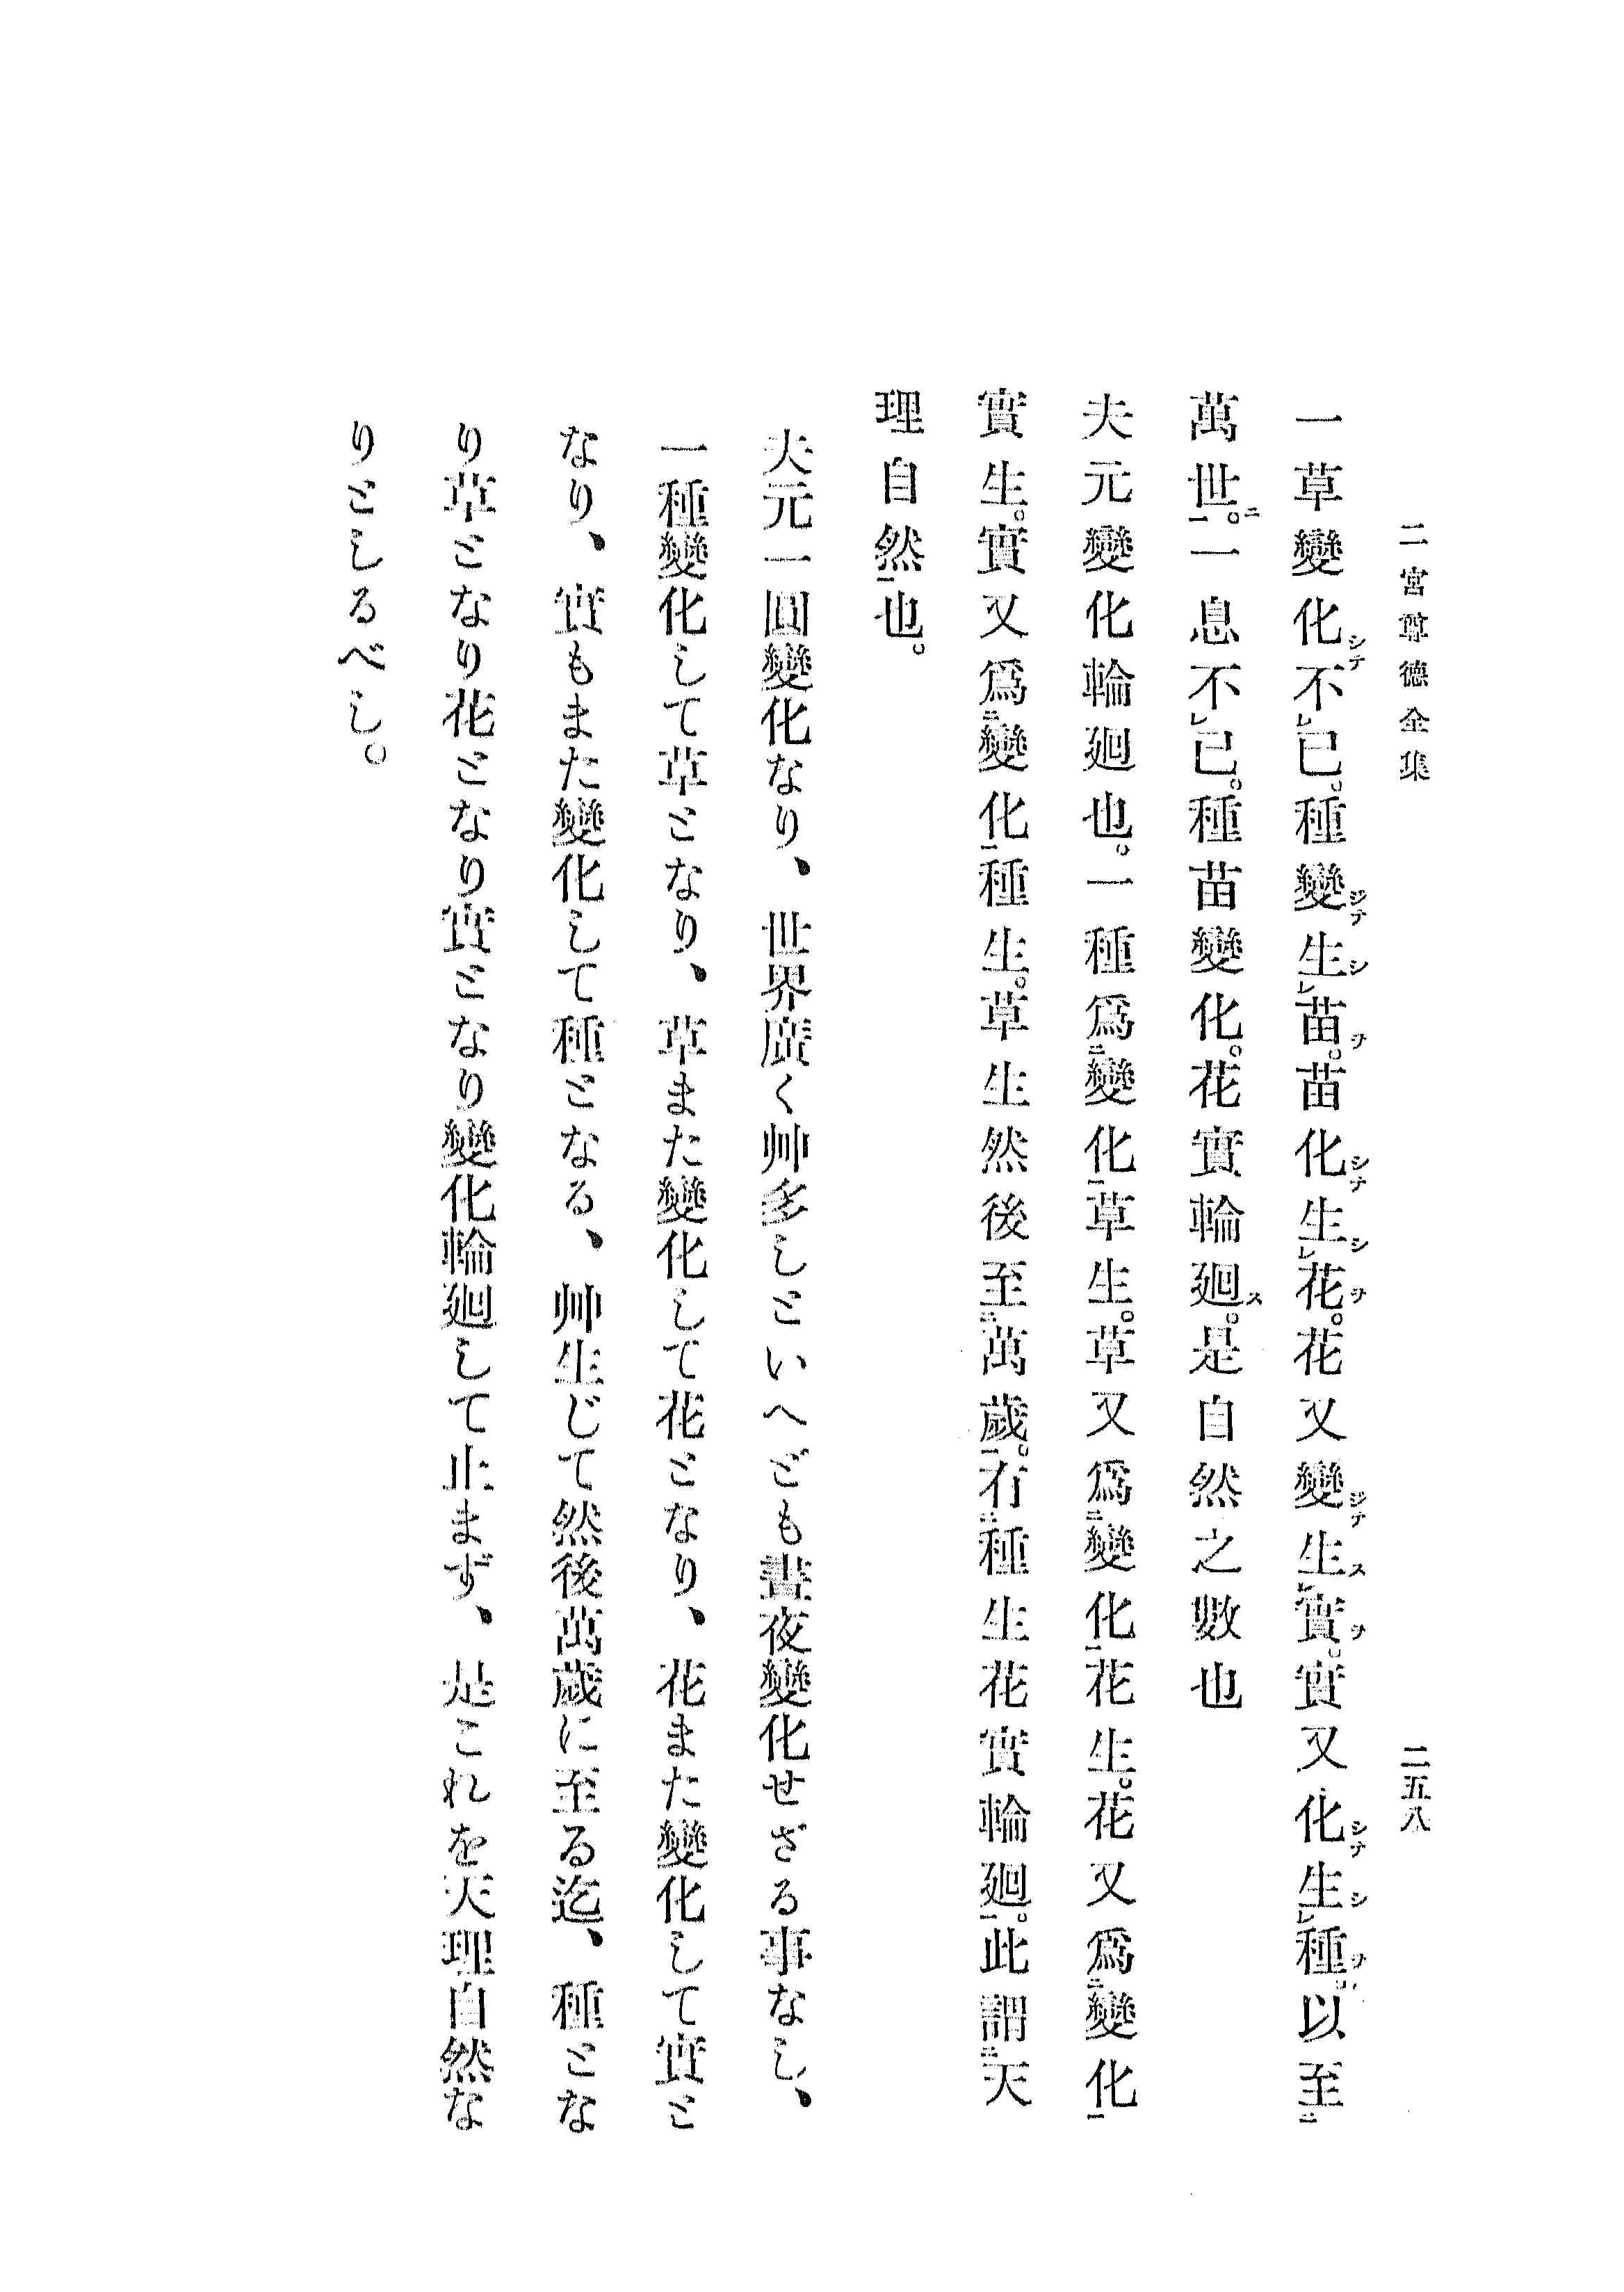 二宮尊德全集
二五八
一草變化シテ不レ已。種變ジテ生シレ苗ヲ。苗化シテ生シレ花ヲ。花又變ジテ生スレ實ヲ。實又化シテ生シレ種ヲ。以至ニ
萬世ニ一。一息不レ已。種苗變化。花實輪廻ス。是自然之數也
夫元變化輪廻也。一種爲ニ變化一草生。草又爲ニ變化一花生。花又爲ニ變化一
實生。實又爲ニ變化一種生。草生然後至ニ萬歲一。有ニ種生花實輪廻一。此謂ニ天
理自然一也。
夫元一圓變化なり、世界廣く艸多しといへども晝夜變化せざる事なし、
一種變化して草となり、草また變化して花となり、花また變化して實と
なり、實もまた變化して種となる、艸生じて然後萬歲に至る迄、種とな
り草となり花となり實となり變化輪廻して止まず、是これを天理自然な
りとしるべし。